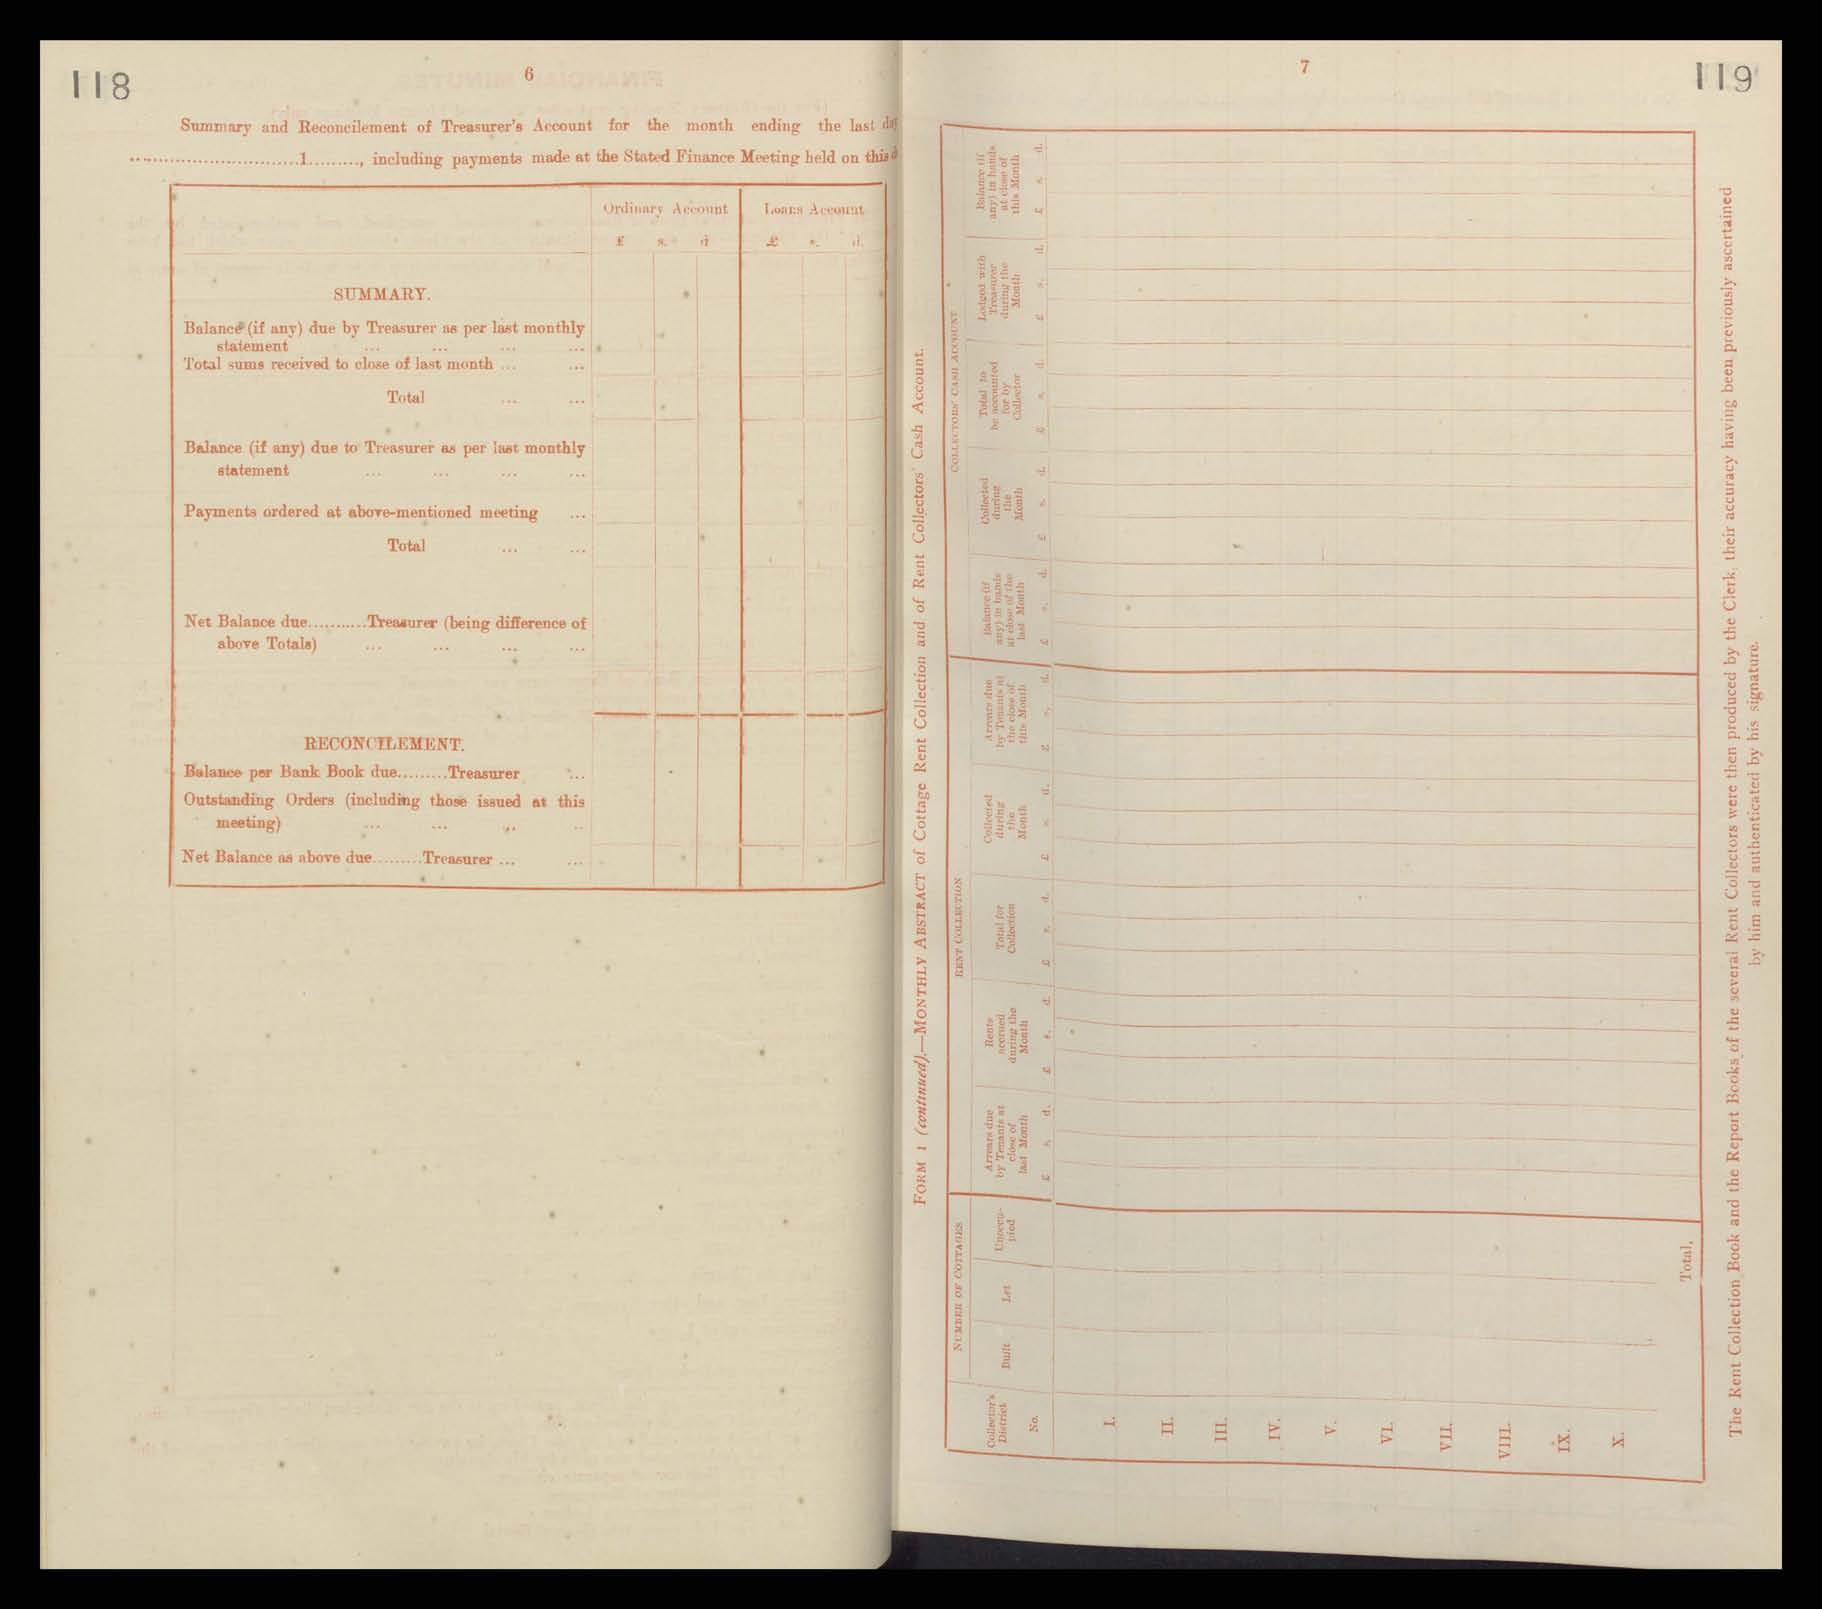 118
6
Summary and Reconcilement of Treasurer's Account for the month ending the last day
..............................1........., including payments made at the Stated Finance Meeting held on this
Ordinary Account
Loans Account
£ s. d
£ s. d.
SUMMARY.
Balance (if any) due by Treasurer as per last monthly
statement ... ... ... ...
Total sums received to close of last month ... ...
Total ... ...
Balance (if any) due to Treasurer as per last monthly
statement ... ... ... ...
Payments ordered at above-mentioned meeting ...
Total ... ...
Net Balance due...........Treasurer (being difference of
above Totals) ... ... ... ...
RECONCILEMENT.
Balance per Bank Book due.........Treasurer ...
Outstanding Orders (including those issued at this
meeting) ... ... ... ..
Net Balance as above due.........Treasurer ... ...
7
119
FORM 1 (continued).—MONTHLY ABSTRACT of Cottage Rent Collection and of Rent Collectors' Cash Account.
NUMBER OF COTTAGES
RENT COLLECTION
COLLECTORS' CASH ACCOUNT
Collector's
District
No.
Built
Let
Unoccu-
pied
Arrears due
by Tenants at
close of
last Month
£ s. d.
Rents
accrued
during the
Month
£ s. d.
Total for
Collection
£ s. d.
Collected
during
the
Month
£ s. d.
Arrears due
by Tenants at
the close of
this Month
£ s. d.
Balance (if
any) in hands
at close of the
last Month
£ s. d.
Collected
during
the
Month
£ s. d.
Total to
be accounted
for by
Collector
£ s. d.
Lodged with
Treasurer
during the
Month
£ s. d.
Balance (if
any) in hands
at close of
this Month
£ s. d.
I.
II.
III.
IV.
V.
VI.
VII.
VIII.
IX.
X.
Total,
The Rent Collection Book and the Report Books of the several Rent Collectors were then produced by the Clerk, their accuracy having been previously ascertained
by him and authenticated by his signature.